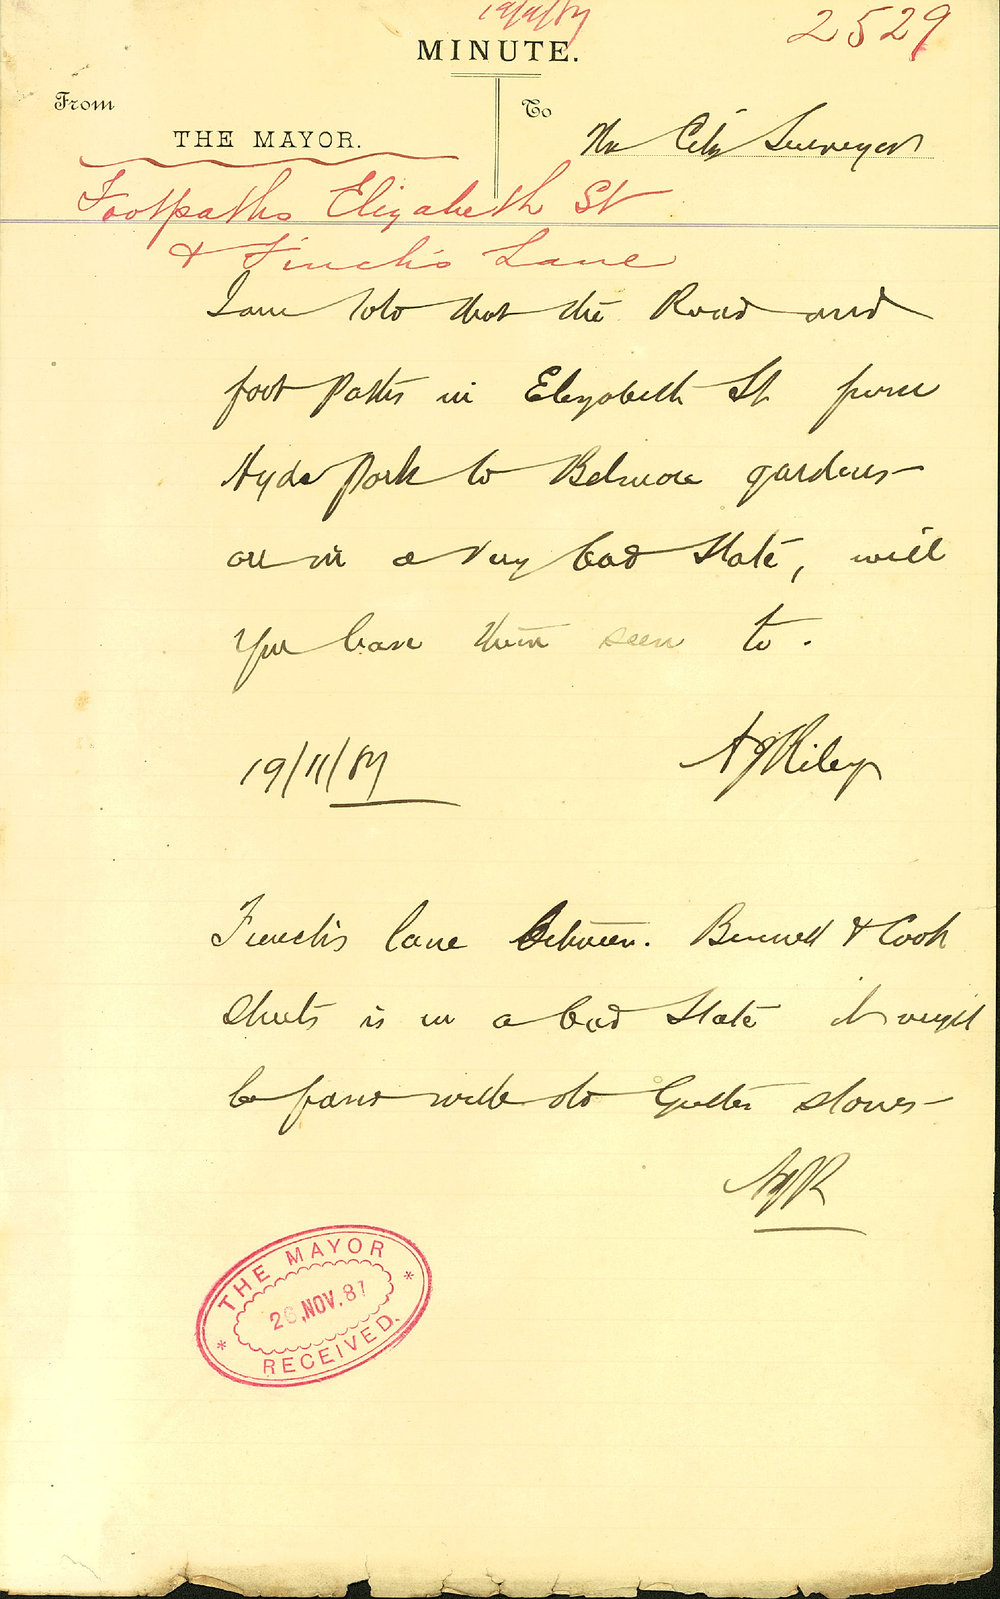 19/11/87
2529
MINUTE.
From
To
THE MAYOR.
The City Surveyor
Footpaths Elizabeth St
& Finch's Lane
I am told that the Road and
foot Paths in Elizabeth St from
Hyde Park to Belmore gardens
are in a very bad state, will
you have them seen to.
19/11/87
A J Riley
Finch's lane between. Bunnell & Cook
Streets is in a bad state it might
be paved with old Gutter stones
AJR
THE MAYOR
26.NOV.87
RECEIVED.